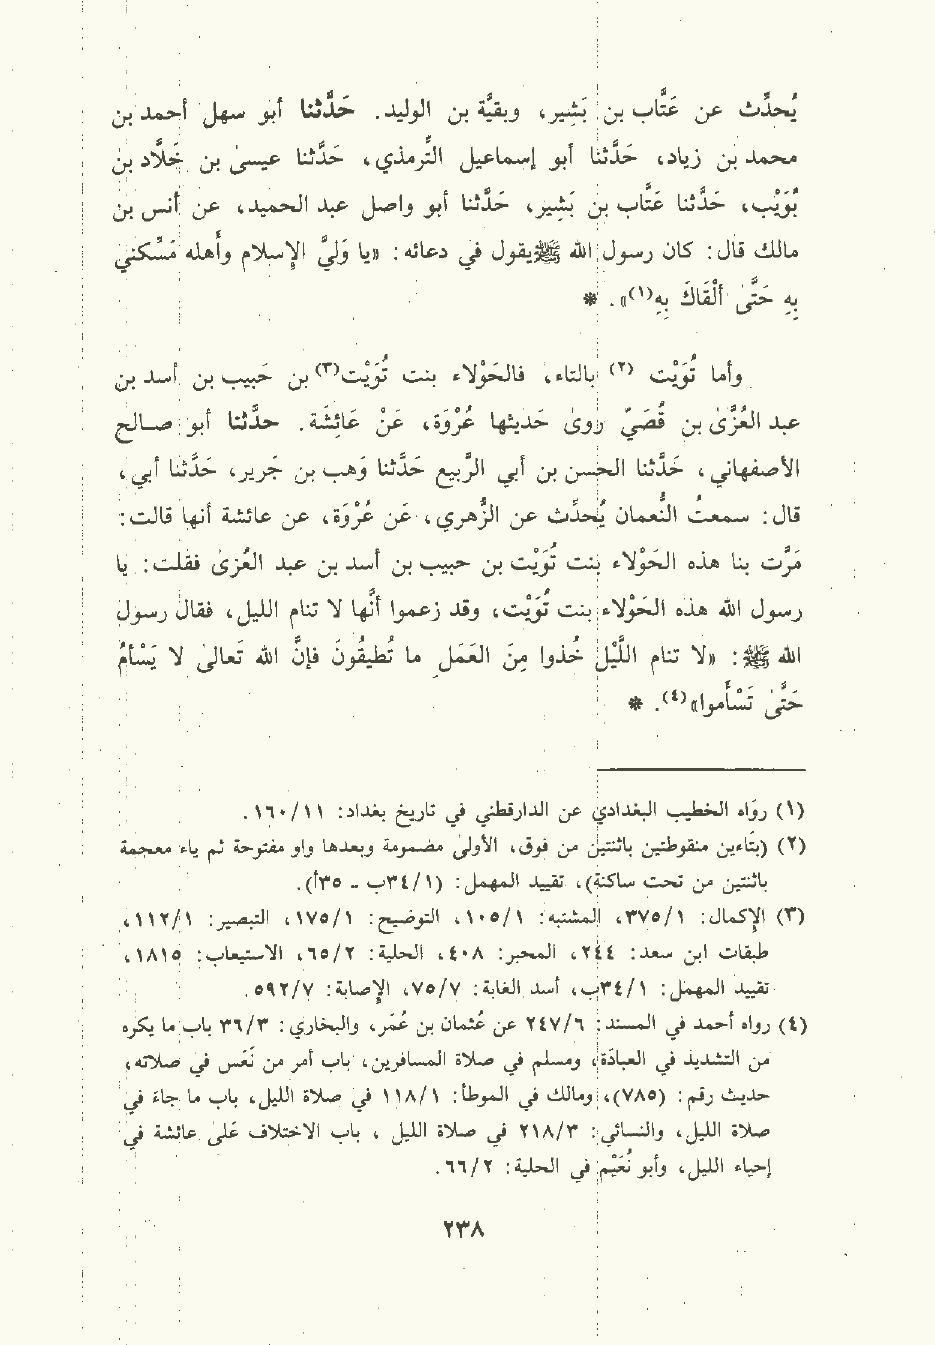 يُحدِّث عن عَتَّاب بن بَشِير، وبقيَّة بن الوليد. حَدَّثنا أبو سهل أحمد بن
محمد بن زياد، حَدَّثنا أبو إسماعيل التِّرمذي، حَدَّثنا عيسىٰ بن خَلَّاد بن
بُوَيْب، حَدَّثنا عَتَّاب بن بَشِير، حَدَّثنا أبو واصل عبد الحميد، عن أنس بن
مالك قال: كان رسول الله ﷺ يقول في دعائه: «يا وَليَّ الإسلام وأهله مَسِّكني
بِهِ حَتَّىٰ ألْقَاكَ بِهِ(١)». *
وأما تُوَيْت (٢) بالتاء، فالحَوْلاء بنت تُوَيْت(٣) بن حَبيب بن أسد بن
عبد العُزَّىٰ بن قُصَيّ روىٰ حَديثها عُرْوَة، عَنْ عَائِشَة. حدَّثنا أبو صالح
الأصفهاني، حَدَّثنا الحسن بن أبي الرَّبيع حَدَّثنا وَهب بن جَرير، حَدَّثنا أبي،
قال: سمعتُ النُّعمان يُحدِّث عن الزُّهري، عَن عُرْوَة، عن عائشة أنها قالت:
مَرَّت بنا هذه الحَوْلاء بنت تُوَيْت بن حبيب بن أسد بن عبد العُزىٰ فقلت: يا
رسول الله هذه الحَوْلاء بنت تُوَيْت، وقد زعموا أنَّها لا تنام الليل، فقال رسول
الله ﷺ: «لا تنام اللَّيْل خُذوا مِنَ العَمَل ما تُطيقُونَ فإنَّ الله تَعالىٰ لا يَسْأمُ
حَتَّىٰ تَسْأَموا»(٤). *
(١) روَاه الخطيب البغدادي عن الدارقطني في تاريخ بغداد: ١٦٠/١١.
(٢) (بتَاءين منقوطتين باثنتين من فوق، الأولىٰ مضمومة وبعدها واو مفتوحة ثم ياء معجمة
باثنتين من تحت ساكنة)، تقييد المهمل: (٣٤/١ب - ٣٥أ).
(٣) الإكمال: ٣٧٥/١، المشتبه: ١٠٥/١، التوضيح: ١٧٥/١، التبصير: ١١٢/١،
طبقات ابن سعد: ٢٤٤، المحبر: ٤٠٨، الحلية: ٦٥/٢، الاستيعاب: ١٨١٥،
تقييد المهمل: ٣٤/١ب، أسد الغابة: ٧٥/٧، الإصابة: ٥٩٢/٧.
(٤) رواه أحمد في المسند: ٢٤٧/٦ عن عُثمان بن عُمَر، والبخاري: ٣٦/٣ باب ما يكره
من التشديد في العبادَة، ومسلم في صلاة المسافرين، باب أمر من نَعَس في صلاته،
حديث رقم: (٧٨٥)، ومالك في الموطأ: ١١٨/١ في صلاة الليل، باب ما جاءَ في
صلاة الليل، والنسائي: ٢١٨/٣ في صلاة الليل ، باب الاختلاف عَلىٰ عائشة في
إحياء الليل، وأبو نُعَيْم في الحلية: ٦٦/٢.
٢٣٨